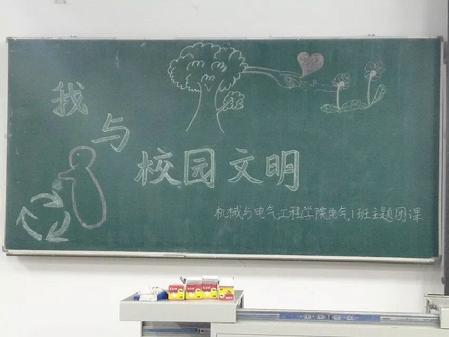 我
与
校园文明
机械与电气工程学院电气1班主题团课